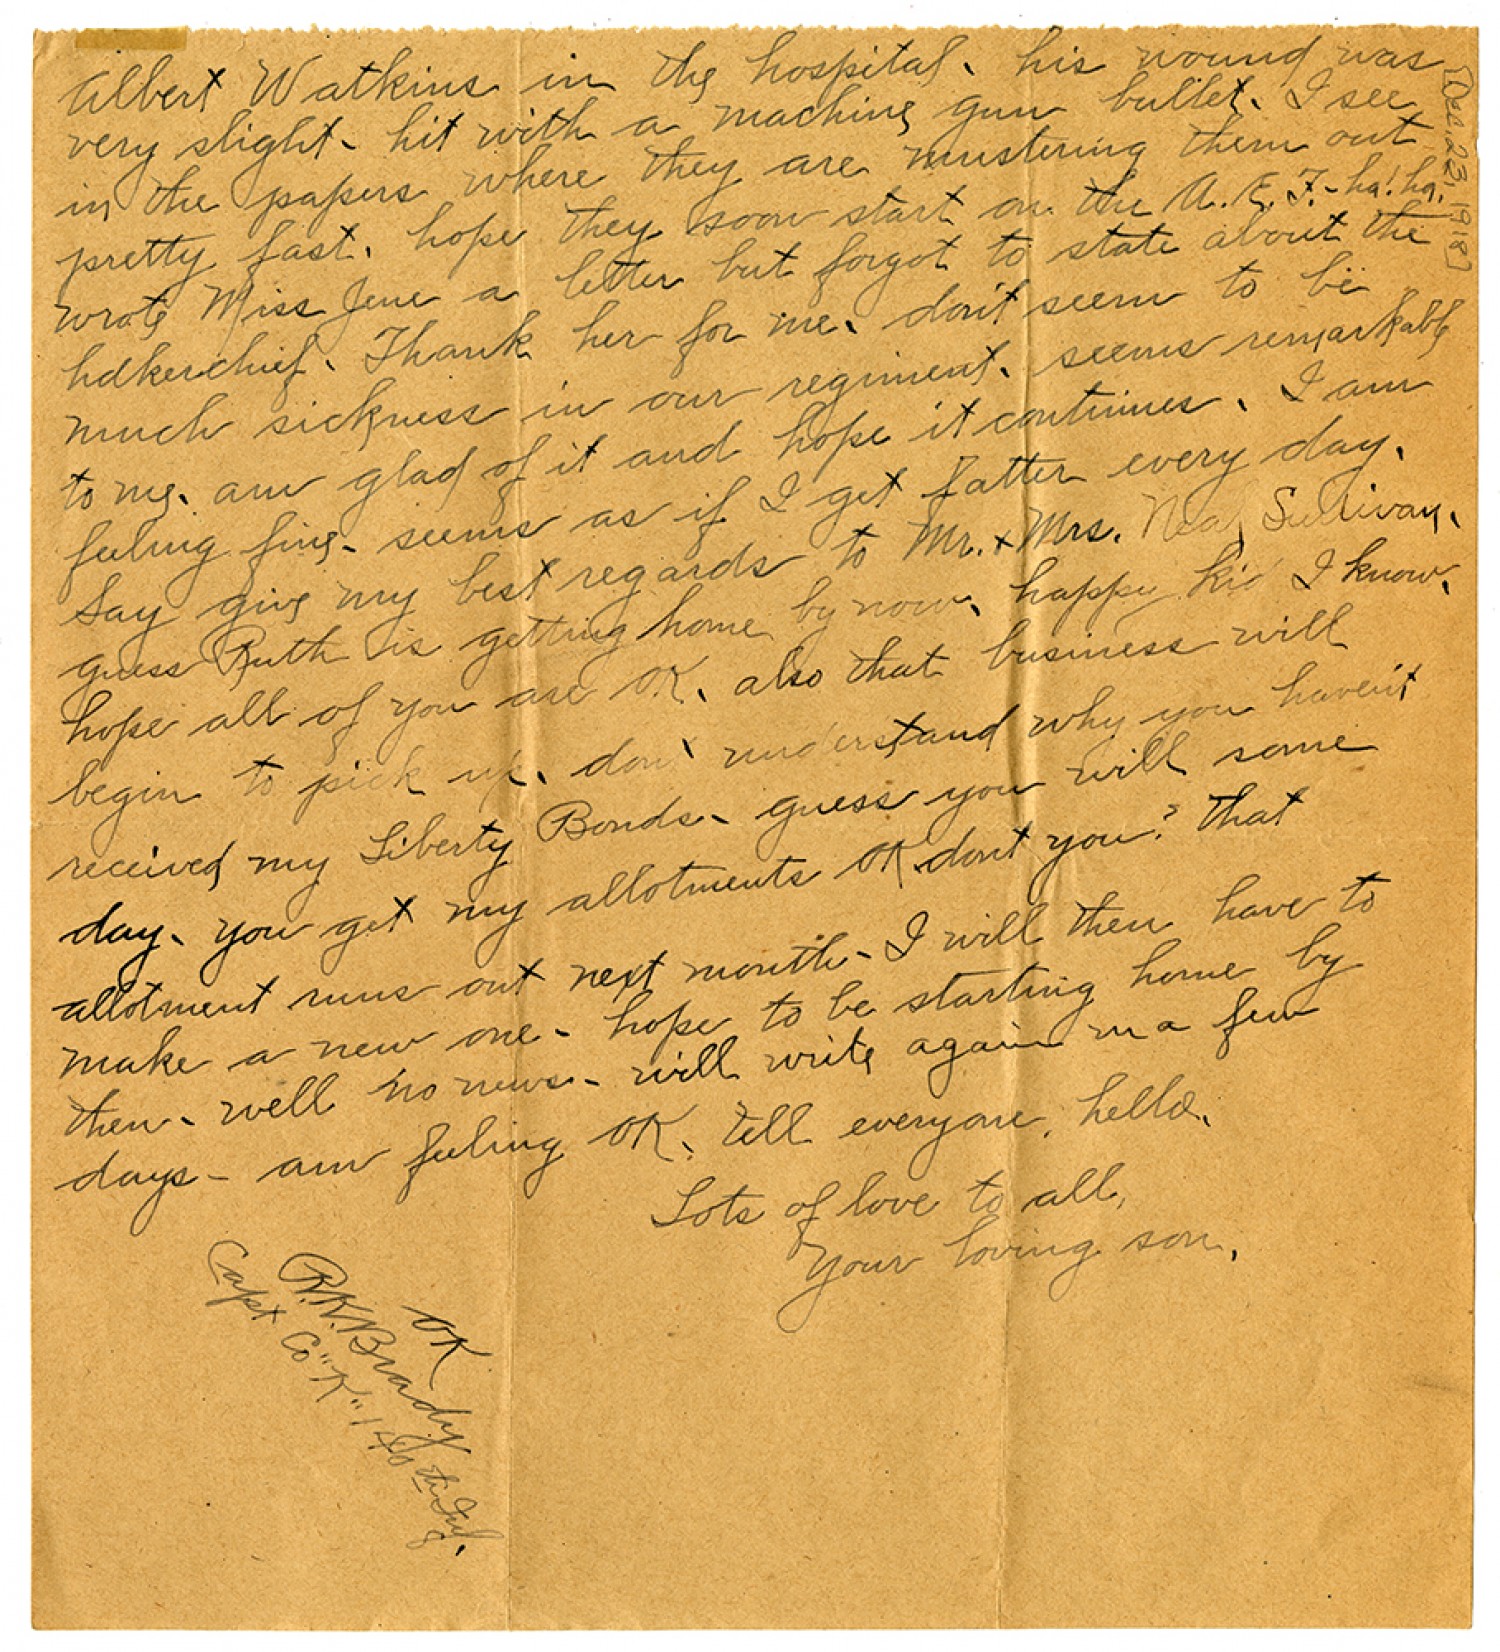 Albert Watkins in the hospital. his wound was
very slight. hit with a machine gun bullet. I see
in the papers where they are mustering them out
pretty fast. hope they soon start on the A.E.F. - ha! ha.
wrote Miss Jene a letter but forgot to state about the
hdkerchief. Thank her for me. don't seem to be
much sickness in our regiment. seems remarkable
to me. am glad of it and hope it continues. I am
feeling fine. seems as if I get fatter every day.
Say give my best regards to Mr. + Mrs. Neal Sullivan.
guess Ruth is getting home by now. happy kid I know.
hope all of you are OK. also that business will
begin to pick up. don't understand why you haven't
received my Liberty Bonds. guess you will some
day. you get my allotments OK don't you? that
allotment runs out next month. I will then have to
make a new one. hope to be starting home by
then. well no news. will write again in a few
days - am feeling OK. tell everyone hello.
Lots of love to all,
Your loving son,
OK
R.K. Brady
Capt Co "K" 140th Inf.
[Dec. 23, 1918]